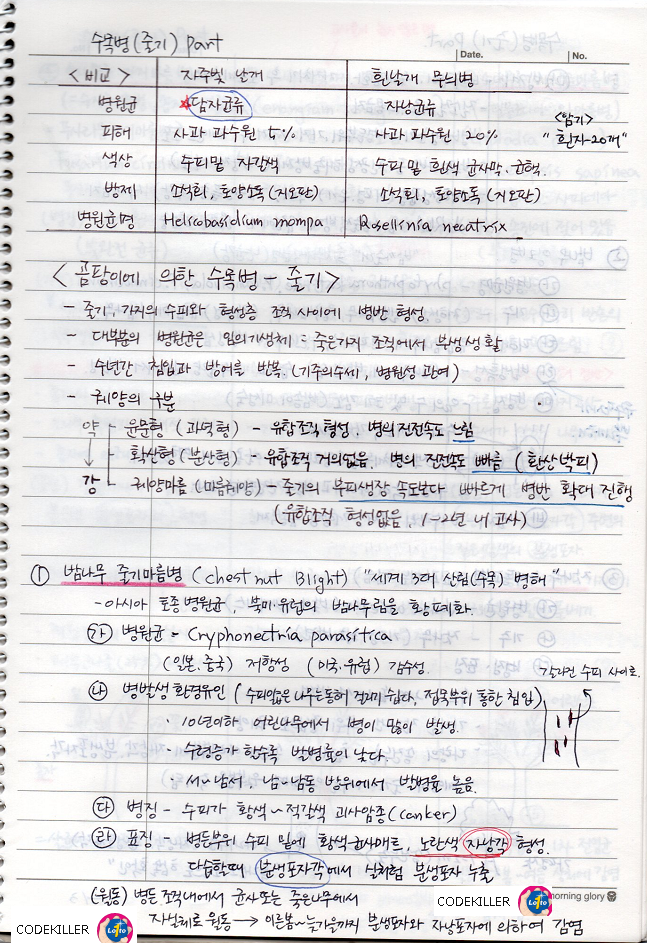 수목병(줄기) part
Date. No.
<비교> 자주빛 날개 흰날개 무늬병
병원균 ★담자균류 자낭균류 <암기>
피해 사과 과수원 5% 사과 과수원 20% "흰자-20개"
색상 수피밑 자갈색 수피 밑 흰색 균사막, 균핵.
방제 소석회, 토양소독(지오판) 소석회, 토양소독(지오판)
병원균명 Helicobasidium mompa Rosellinia necatrix
<곰팡이에 의한 수목병 - 줄기>
- 줄기, 가지의 수피와 형성층 조직 사이에 병반 형성.
- 대부분의 병원균은 임의기생체 = 죽은가지 조직에서 부생생활
- 수년간 침입과 방어를 반복 (기주의수세, 병원성 관여)
- 궤양의 구분
약 - 윤문형 (과녁형) - 유합조직 형성. 병의 진전속도 느림
- 확산형(분산형) - 유합조직 거의없음. 병의 진전속도 빠름 (환상박피)
강 - 궤양마름 (마름궤양) - 줄기의 부피생장 속도보다 빠르게 병반 확대 진행
(유합조직 형성없음, 1~2년 내 고사)
① 밤나무 줄기마름병 (chestnut Blight) "세계 3대 산림(수목) 병해"
- 아시아 토종병원균, 북미·유럽의 밤나무림을 황폐화.
㉮ 병원균 - Cryphonectria parasitica
(일본·중국) 저항성 (미국·유럽) 감수성.
갈라진 수피 사이로.
㉯ 병발생 환경유인 (수피얇은나무는동해 걸리기 쉽다, 접목부위 통한 침입)
· 10년이하 어린나무에서 병이 많이 발생.
· 수령증가 할수록 발병률이 낮다.
· 서~남서, 남~남동 방위에서 발병률 높음.
㉰ 병징 - 수피가 황색~적갈색 괴사암종(canker)
㉱ 표징 병든부위 수피 밑에 황색균사매트, 노란색 자낭각 형성.
다습할때 분생포자각에서 실처럼 분생포자 누출
(월동) 병든 조직내에서 균사또는 죽은나무에서
morning glory
자실체로 월동 → 이른봄~늦가을까지 분생포자와 자낭포자에 의하여 감염
CODEKILLER Lotto
CODEKILLER Lotto